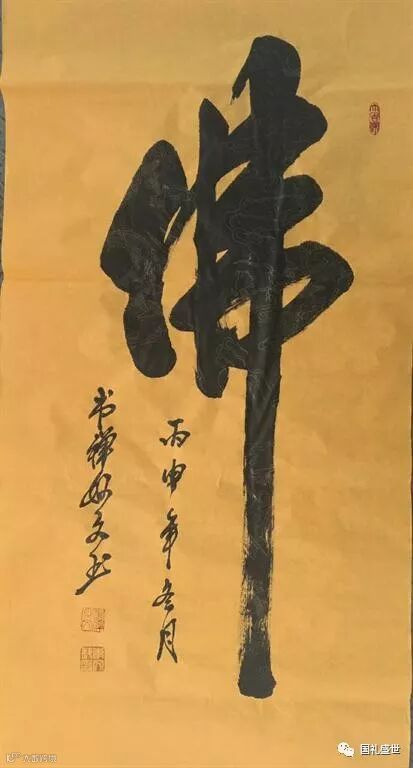 佛
丙申年冬月
书禅妙文
国礼盛世